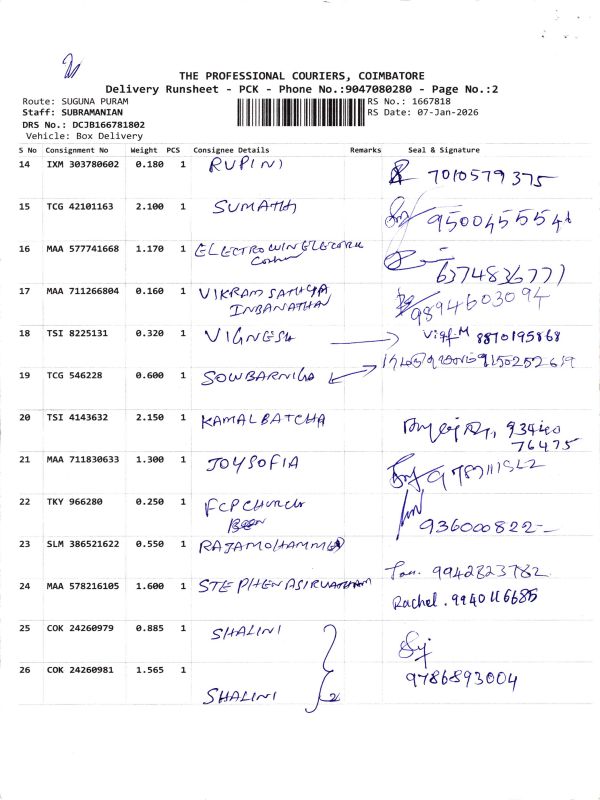 THE PROFESSIONAL COURIERS, COIMBATORE
Delivery Runsheet - PCK - Phone No.:9047080280 - Page No.:2
Route: SUGUNA PURAM RS No.: 1667818
Staff: SUBRAMANIAN RS Date: 07-Jan-2026
DRS No.: DCJB166781802
Vehicle: Box Delivery
S No Consignment No Weight PCS Consignee Details Remarks Seal & Signature
14 IXM 303780602 0.180 1 RUPINI 7010579375
15 TCG 42101163 2.100 1 SUMATHI
16 MAA 577741668 1.170 1 ELECTROWIN 6374836771
17 MAA 711266804 0.160 1 VIKRAM SATHYA
INBANATHAN 9894603094
18 TSI 8225131 0.320 1 VIGNESH 8870195868
19 TCG 546228 0.600 1 SOWBARNIGA
20 TSI 4143632 2.150 1 KAMALBATCHA 93440
76475
21 MAA 711830633 1.300 1 JOYSOFIA
22 TKY 966280 0.250 1 FCP CHURCH
23 SLM 386521622 0.550 1 RAJAMOHAMMED 9942823782
24 MAA 578216105 1.600 1 STEPHENASIRVATHAM Rachel. 9940116685
25 COK 24260979 0.885 1 SHALINI
26 COK 24260981 1.565 1 9786893004
SHALINI 2